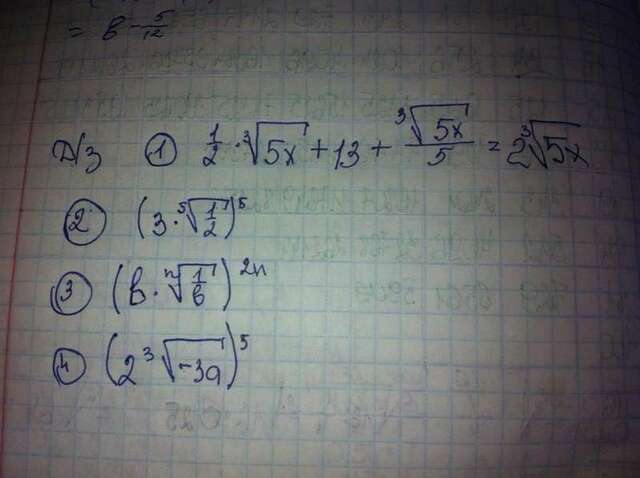 = b - 5/12
Д/з ① 1/2 · ³√5x + 13 + ³√5x/5 = 2 ³√5x
② (3 · ⁵√1/2)⁵
③ (b · ⁿ√1/b)²ⁿ
④ (2 ³√-3a)⁵